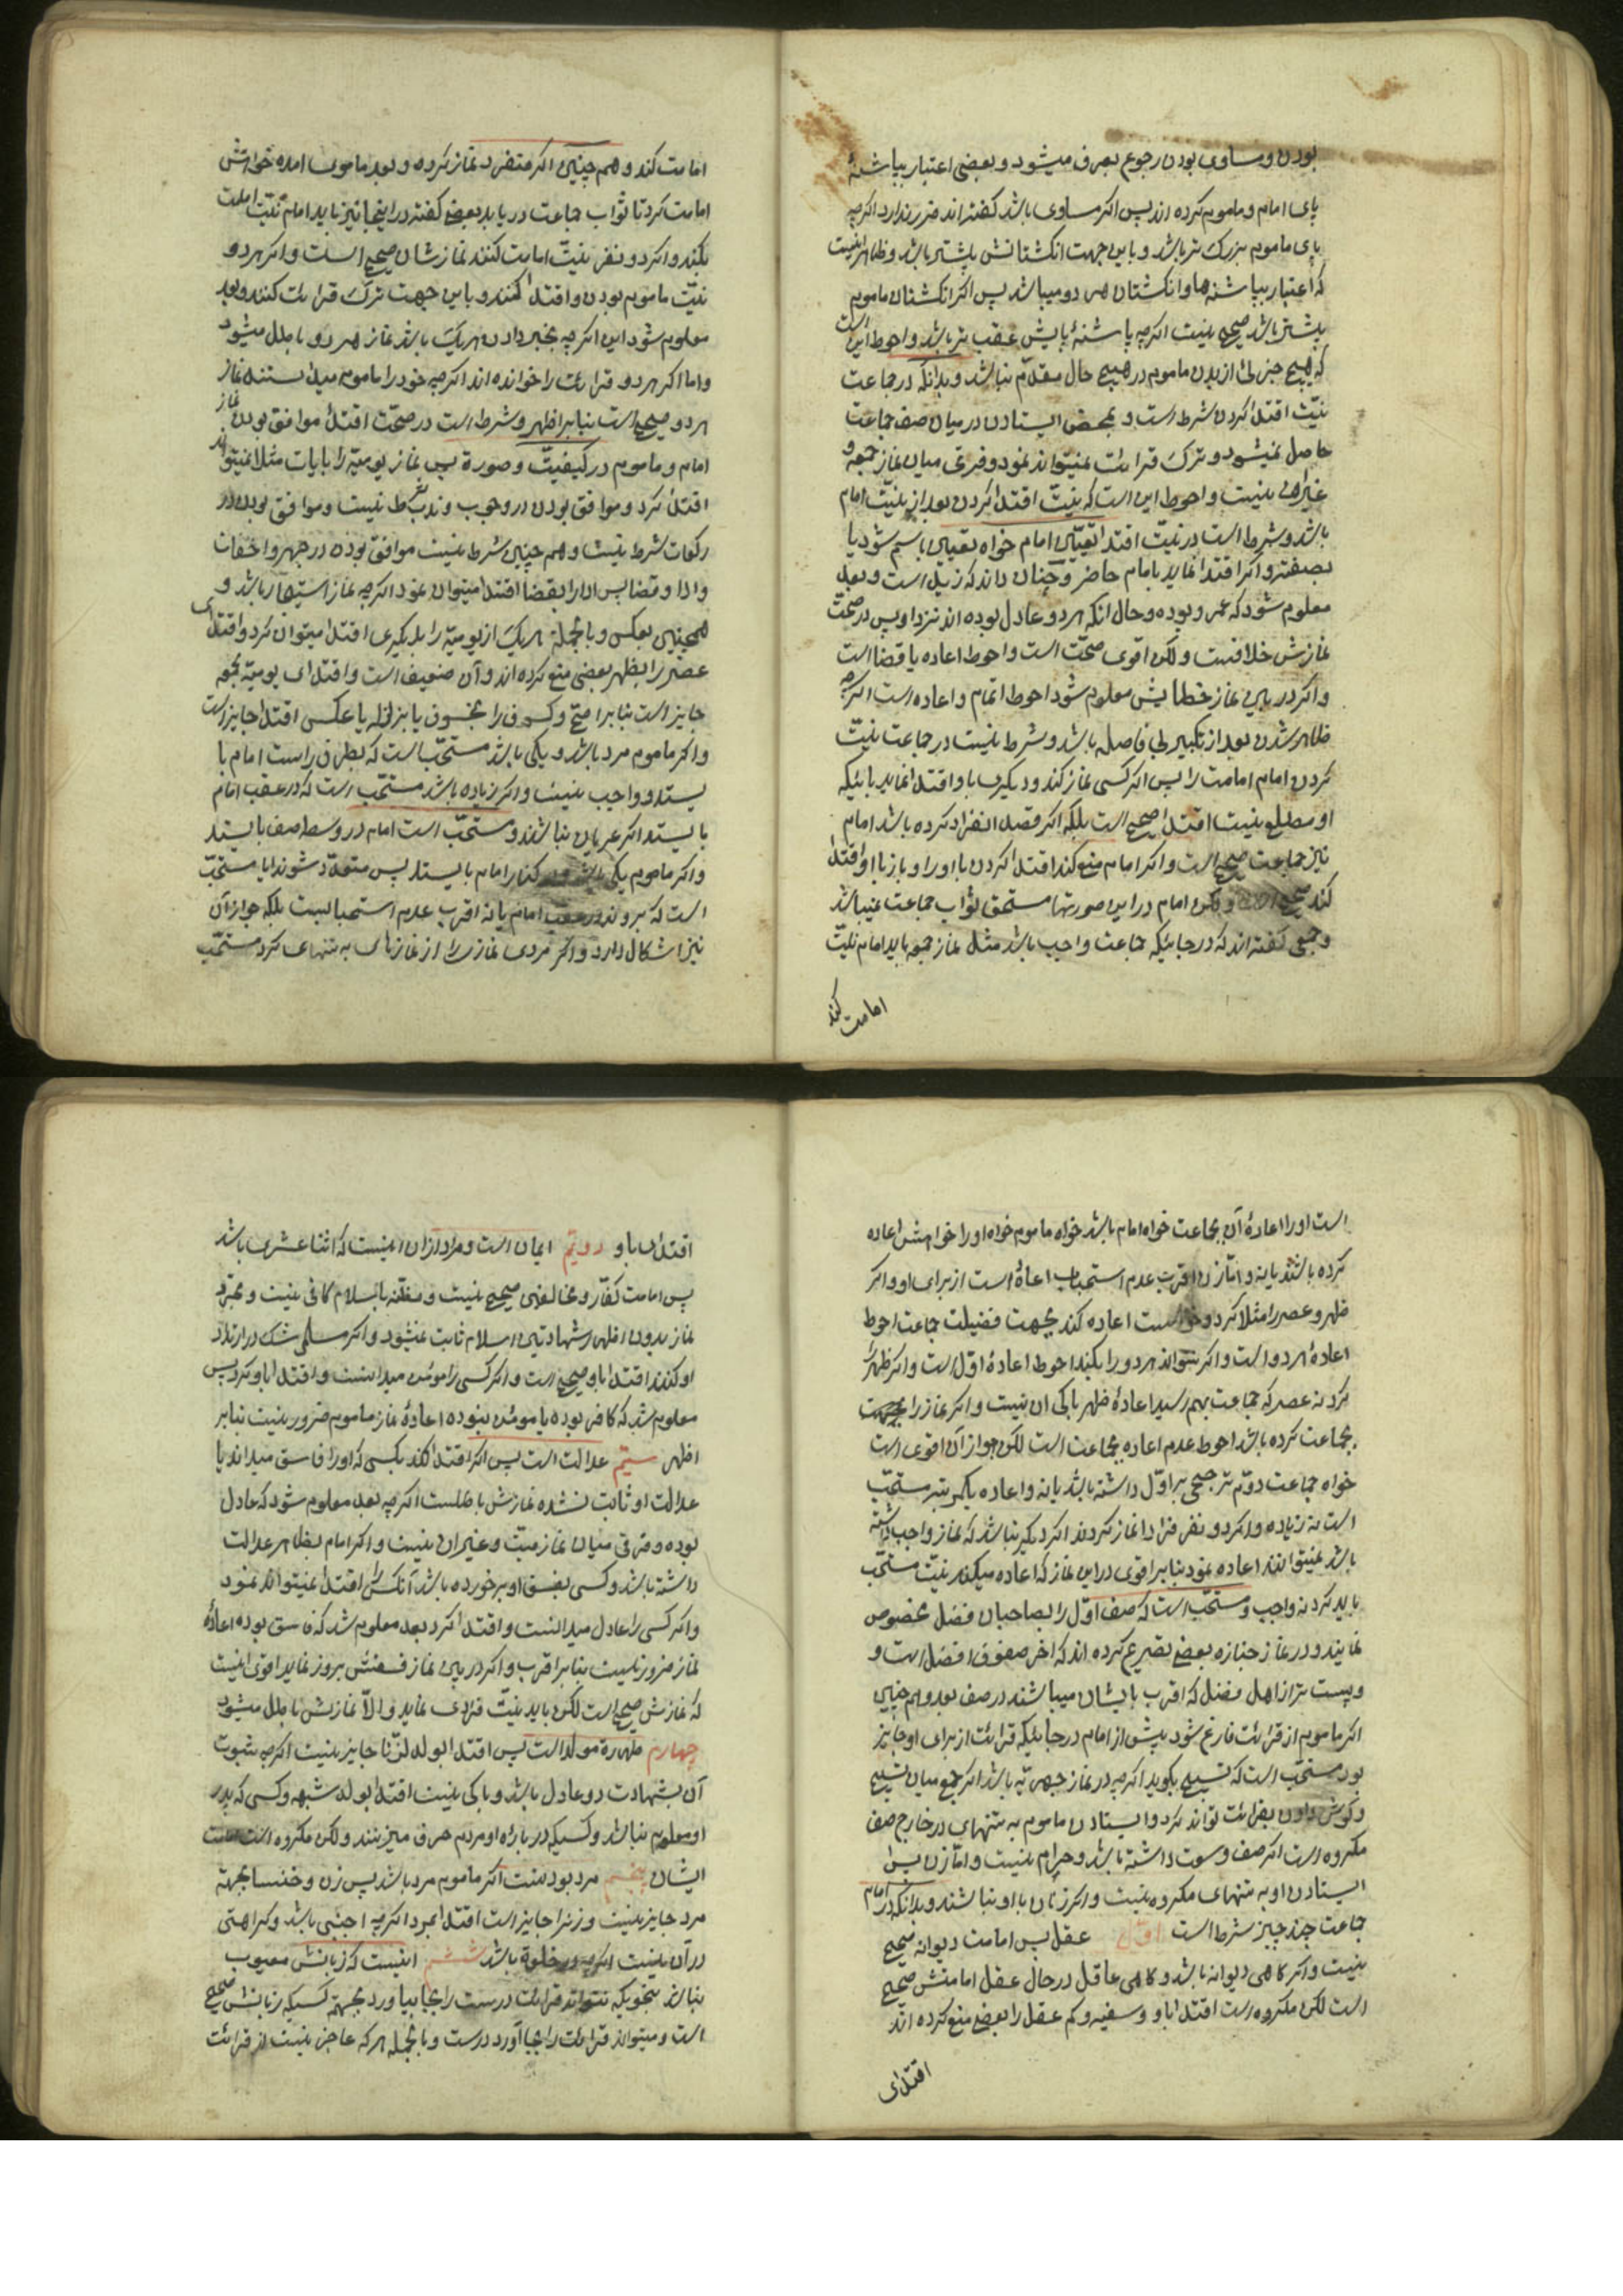 بودن و مساوی بودن رجوع بعرف میشود و بعضی اعتبار بپاشنهٔ
پای امام و ماموم کرده اند پس اگر مساوی باشد گفته اند ضرر ندارد اگرچه
پای ماموم بزرگ تر باشد و باین جهت انگشتانش پیشتر باشد و ظاهر اینست
که اعتبار بپاشنه ها و انگشتان هر دو میباشد پس اگر انگشتان ماموم
پیشتر باشد صحیح نیست اگرچه پاشنهٔ پایش عقب تر باشد و احوط این است
که هیچ جزئی از بدن ماموم در هیچ حال مقدّم نباشد و بدانکه در جماعت
نیّت اقتدا کردن شرط است و بمحض ایستادن در میان صف جماعت
حاصل نمیشود و ترک قرائت نمیتواند نمود و فرقی میان نماز جمعه و
غیر اها نیست و احوط این است که نیّت اقتدا کردن بعد از نیّت امام
باشد و شرط است در نیّت اقتدا تعیین امام خواه تعیین باسم شود یا
بصفت و اگر اقتدا نماید بامام حاضر و چنان داند که زید است و بعد
معلوم شود که عمرو بوده و حال انکه هر دو عادل بوده اند نزد او پس در صحّت
نمازش خلافست و لکن اقوی صحّت است و احوط اعاده یا قضا است
و اگر در بین نماز خطایش معلوم شود احوط اتمام و اعاده است اگرچه
ظاهر شدن بعد از تکبیر بی فاصله باشد و شرط نیست در جماعت نیّت
کردن امام امامت را پس اگر کسی نماز کند و دیگری باو اقتدا نماید بانیکه
او مطلع نیست اقتدا صحیح است بلکه اگر قصد انفراد کرده باشد امام
نیز جماعت صحیح است و اگر امام منع کند اقتدا کردن با او را و باز با او اقتدا
کند صحیح است و لکن امام در این صورتها مستحق ثواب جماعت نمیباشد
و جمعی گفته اند که در جائیکه جماعت واجب باشد مثل نماز جمعه باید امام نیّت
امامت کند
امامت کند و هم چنین اگر منفرد نماز کرده و بعد مامومی امده خواهش
امامت کرد تا ثواب جماعت دریابد بعضی گفته در اینجا نیز باید امام نیّت امامت
بکند و اگر دو نفر نیّت امامت کنند نماز شان صحیح است و اگر هر دو
نیّت ماموم بودن و اقتدا کنند و باین جهت ترک قرائت کنند و بعد
معلوم شود این اگرچه بخبر دادن هر یک باشد نماز هر دو باطل میشود
و اما اگر هر دو قرائت را خوانده اند اگرچه خود را ماموم میدانستند نماز
هر دو صحیح است بنابر اظهر و شرط است در صحّت اقتدا موافق بودن نماز
امام و ماموم در کیفیّت و صورة پس نماز یومیّه را بایات مثلا نمیتواند
اقتدا کرد و موافق بودن در وجوب و ندب شرط نیست و موافق بودن در
رکعات شرط نیست و هم چنین شرط نیست موافق بودن در جهر و اخفات
و ادا و قضا پس ادا را بقضا اقتدا میتوان نمود اگرچه نماز استیجار باشد و
همچنین بعکس و بالجملة هر یک از یومیّه را بدیگری اقتدا میتوان کرد و اقتدای
عصر را بظهر بعضی منع کرده اند و آن ضعیف است و اقتدای یومیّه بجمعه
جایز است بنابر اصحّ و کسوف را بخسوف یا بزلزله یا عکس اقتدا جایز است
و اگر ماموم مرد باشد و یکی باشد مستحّب است که بطرف راست امام با
یستد و واجب نیست و اگر زیاده باشد مستحّب است که در عقب امام
بایستد اگر عریان نباشند و مستحّب است امام در وسط صف بایستد
و اگر ماموم یکی باشد و در کنار امام بایستد پس متعدّد شوند ایا مستحّب
است که بروند در عقب امام یا نه اقرب عدم استحبابست بلکه جواز آن
نیز اشکال دارد و اگر مردی نمازی را از نمازهای به تنهای کرد مستحّب
است او را اعادهٔ آن بجماعت خواه امام باشد خواه ماموم خواه او را خواهش اعاده
کرده باشند یا نه و امّا زن اقرب عدم استحباب اعادهٔ است از برای او و اگر
ظهر و عصر را مثلا کرد و خواست اعاده کند بجهت فضیلت جماعت احوط
اعادهٔ هر دو است و اگر نتواند هر دو را بکند احوط اعادهٔ اوّل است و اگر ظهر را
کرد نه عصر که جماعت بهم رسید اعادهٔ ظهر باکی ان نیست و اگر نماز را بجهت
بجماعت کرده باشد احوط عدم اعاده بجماعت است لکن جواز آن اقوی است
خواه جماعت دوّم ترجیحی بر اوّل داشته باشد یا نه و اعاده یکمرتبه مستحّب
است نه زیاده و اگر دو نفر فرادا نماز کردند اگر دیگر نباشد که نماز واجب داشته
باشد نمیتوانند اعاده نمود بنابر اقوی در این نماز که اعاده میکند نیّت مستحّب
باید کرد نه واجب و مستحّب است که صف اوّل را بصاحبان فضل مخصوص
نمایند و در نماز جنازه بعضی تصریح کرده اند که اخر صفوف افضل است و
و پست تر از اهل فضل که اقرب بایشان میباشند در صف بعد و هم چنین
اگر ماموم از قرائت فارغ شود پیش از امام در جائیکه قرائت از برای او جایز
بود مستحّب است که تسبیح بگوید اگرچه در نماز جهریّه باشد اگر جمع میان تسبیح
و گوش دادن بقرائت تواند کرد و ایستادن ماموم به تنهای در خارج صف
مکروه است اگر صف وسعت داشته باشد و حرام نیست و امّا زن پس
ایستادن او به تنهای مکروه نیست و اگر زنان با او نباشند و بدانکه در امام
جماعت چند چیز شرط است اوّل عقل پس امامت دیوانه صحیح
نیست و اگر گاهی دیوانه باشد و گاهی عاقل در حال عقل امامتش صحیح
است لکن مکروه است اقتدا باو و سفیه و کم عقل را بعضی منع کرده اند
اقتدای
اقتدای باو دویّم ایمان است و مراد از ان اینست که اثنا عشری باشد
پس امامت کفّار و مخالفین صحیح نیست و مظنّه باسلام کافی نیست و بمجرّد
نماز بدون اظهار شهادتین اسلام ثابت نمیشود و اگر مسلمی شک در ارتداد
او کند اقتدا باو صحیح است و اگر کسی را مؤمن میدانست و اقتدا باو کرد پس
معلوم شد که کافر بوده یا مومئن نبوده اعادهٔ نماز ماموم ضرور نیست بنابر
اظهر سیّم عدالت است پس اگر اقتدا کند بکسی که او را فاسق میداند یا
عدالت او ثابت نشده نمازش باطلست اگرچه بعد معلوم شود که عادل
بوده و فرقی میان نماز میّت و غیر ان نیست و اگر امام بظاهر عدالت
داشته باشد و کسی بفسق او برخورده باشد آنکس را اقتدا نمیتواند نمود
و اگر کسی را عادل میدانست و اقتدا کرد بعد معلوم شد که فاسق بوده اعادهٔ
نماز ضرور نیست بنابر اقرب و اگر در بین نماز فسقش بروز نماید اقوی اینست
که نمازش صحیح است لکن باید نیّت فرادی نماید و الّا نمازش باطل میشود
چهارم طهارة مولد است پس اقتدا بولد الزّنا جایز نیست اگرچه بثبوت
آن بشهادت دو عادل باشد و باکی نیست اقتدا بولد شبهه و کسی که پدر
او معلوم نباشد و کسیکه در باراه او مردم حرف میزنند و لکن مکروه است
ایشان پنجم مرد بودنست اگر ماموم مرد باشد پس زن و خنسا بجهته
مرد جایز نیست و زنرا جایز است اقتدا بمرد اگرچه اجنبی باشد و کراهتی
در آن نیست اگرچه در خلوة باشد ششم اینست که زبانش معیوب
نباشد بنحویکه نتواند قرائت درست را بجا بیاورد بجهته کسیکه زبانش صحیح
است و میتواند قرائت را بجا آورد درست و بالجمله هر که عاجز نیست از قرائت